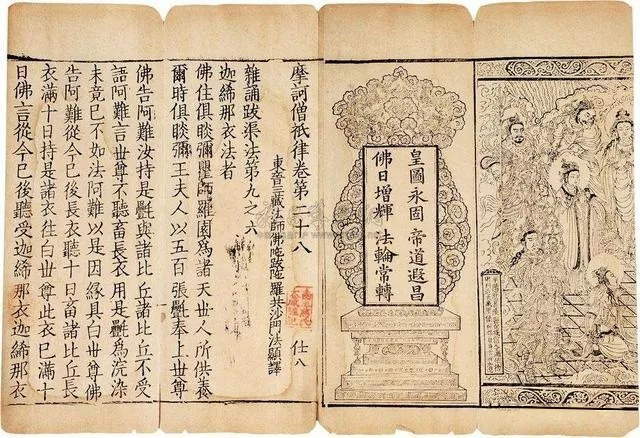 皇圖永固 帝道遐昌
佛日增輝 法輪常轉
摩訶僧祇律卷第二十八 仕八
東晉三藏法師佛陀跋陀羅共沙門法顯譯
雜誦跋渠法第九之六
迦絺那衣法者
佛住俱睒彌瞿師羅園爲諸天世人所供養
爾時俱睒彌王夫人以五百張氎奉上世尊
佛告阿難汝持是氎與諸比丘諸比丘不受
語阿難言世尊不聽畜長衣用是氎爲浣染
未竟已不如法阿難以是因緣具白世尊佛
告阿難從今已後長衣聽十日畜諸比丘長
衣滿十日持是諸衣往白世尊此衣已滿十
日佛言從今已後聽受迦絺那衣迦絺那衣